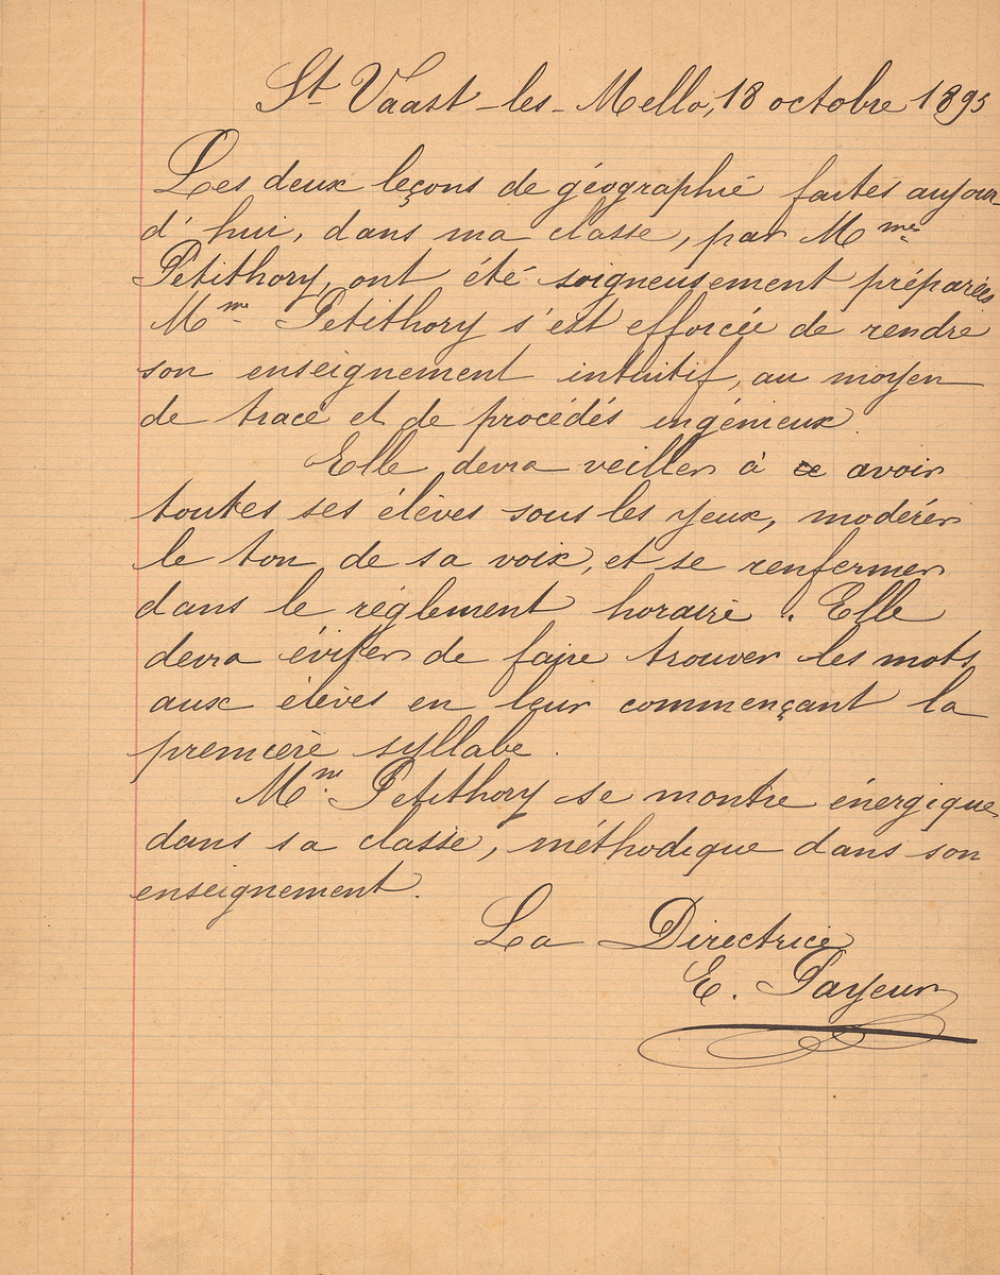 St Vaast-les-Mello, 18 octobre 1895
Les deux leçons de géographie faites aujour
d'hui, dans ma classe, par Mme
Petithory, ont été soigneusement préparées
Mme Petithory s'est efforcée de rendre
son enseignement intuitif, au moyen
de tracé et de procédés ingénieux.
Elle devra veiller à ce avoir
toutes ses élèves sous les yeux, modérer
le ton de sa voix, et se renfermer
dans le règlement horaire. Elle
devra éviter de faire trouver les mots
aux élèves en leur commençant la
première syllabe.
Mme Petithory se montre énergique
dans sa classe, méthodique dans son
enseignement.
La Directrice
E. Payeur